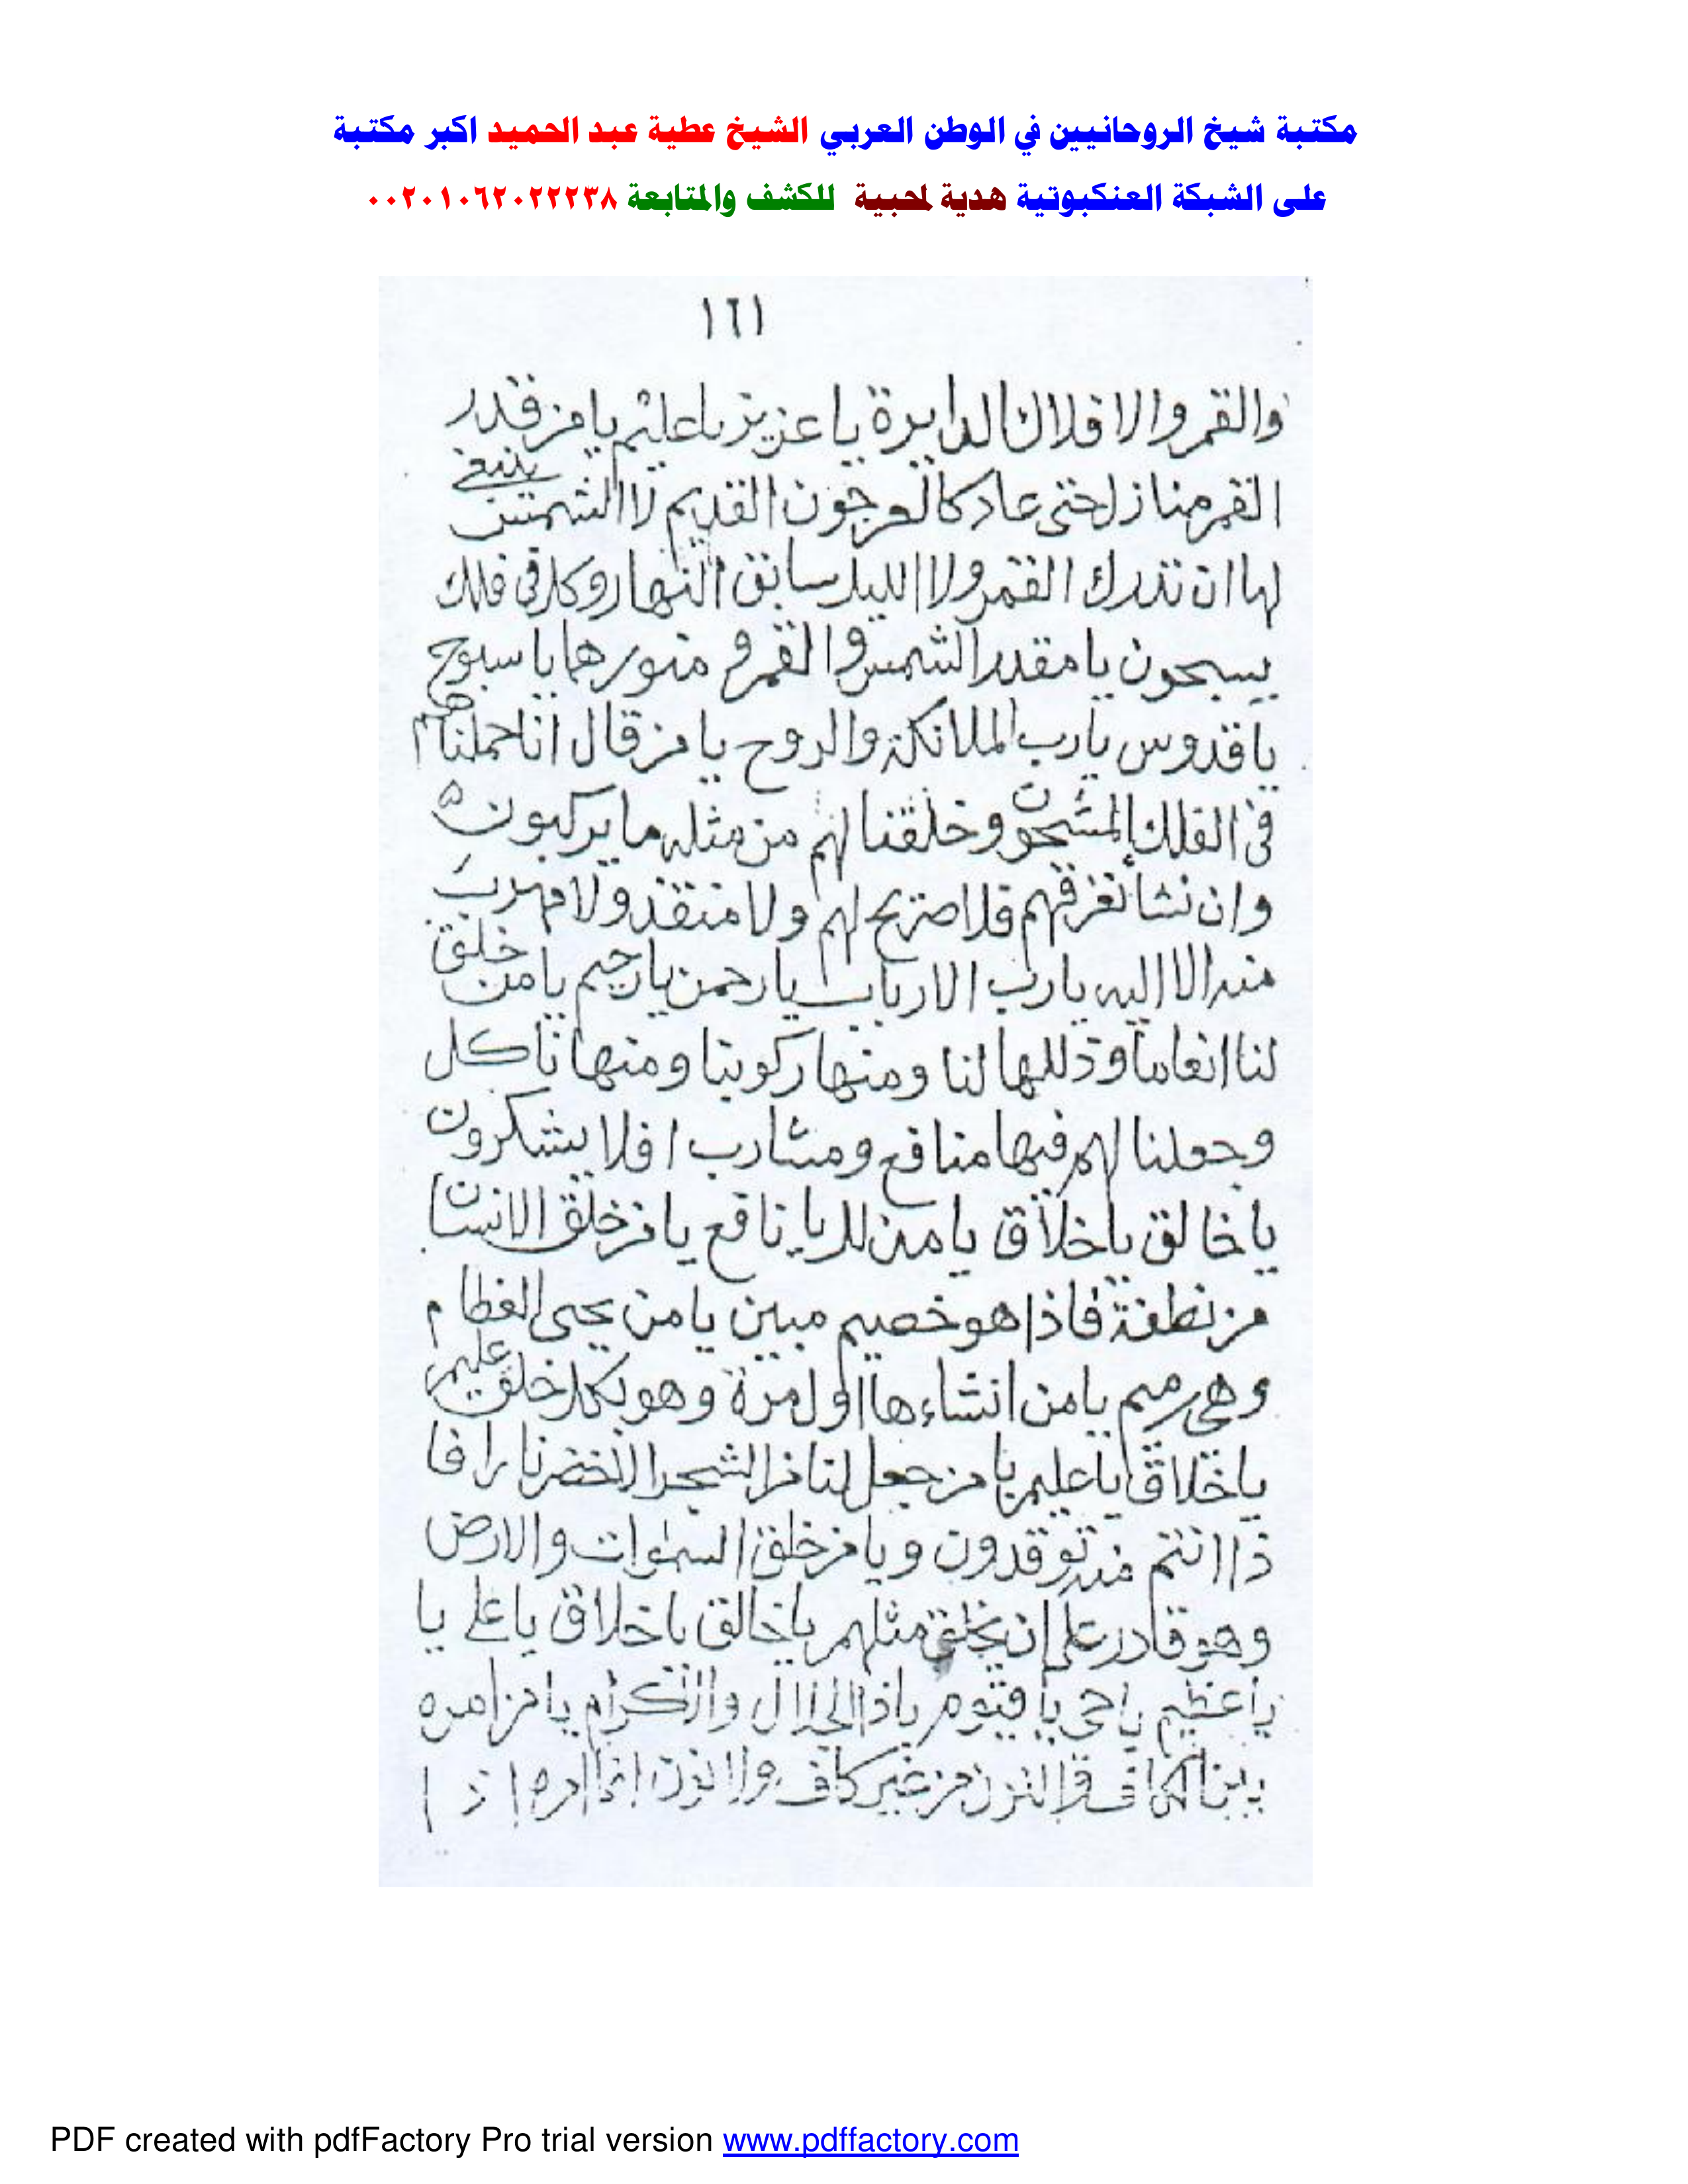 مكتبة شيخ الروحانيين في الوطن العربي الشيخ عطية عبد الحميد اكبر مكتبة
على الشبكة العنكبوتية هدية لمحبية للكشف والمتابعة ٠٠٢٠١٠٦٢٠٢٢٢٣٨
١٦١
والقمر والافلاك الدايرة يا عزيز يا عليم يا من قدر
القمر منازل حتى عاد كالعرجون القديم لا الشمس ينبغي
لها ان تدرك القمر ولا الليل سابق النهار وكل في فلك
يسبحون يا مقدر الشمس والقمر و منورها يا سبوح
يا قدوس يا رب الملائكة والروح يا من قال انا حملناهم
في الفلك المشحون وخلقنا لهم من مثله ما يركبون
وان نشا نغرقهم فلا صريخ لهم ولا منقذ ولا مهرب
منه الا اليه يا رب الارباب يا رحمن يا رحيم يا من خلق
لنا انعاما وذللها لنا ومنها ركوبنا ومنها ناكل
وجعلنا لهم فيها منافع ومشارب افلا يشكرون
يا خالق يا خلاق يا نافع يا من خلق الانسان
من نطفة فاذا هو خصيم مبين يا من يحيى العظام
وهي رميم يا من انشاءها اول مرة وهو بكل خلق عليم
يا خلاق يا عليم يا من جعل لنا من الشجر الاخضر نارا فا
ذا انتم منه توقدون و يا من خلق السموات والارض
وهو قادر على ان يخلق مثلهم يا خالق يا خلاق يا على يا
يا عظيم يا حي يا قيوم يا ذا الجلال والاكرام يا من امره
بين الكاف والنون من غير كاف ولا نون انما امره اذ ا
PDF created with pdfFactory Pro trial version www.pdffactory.com